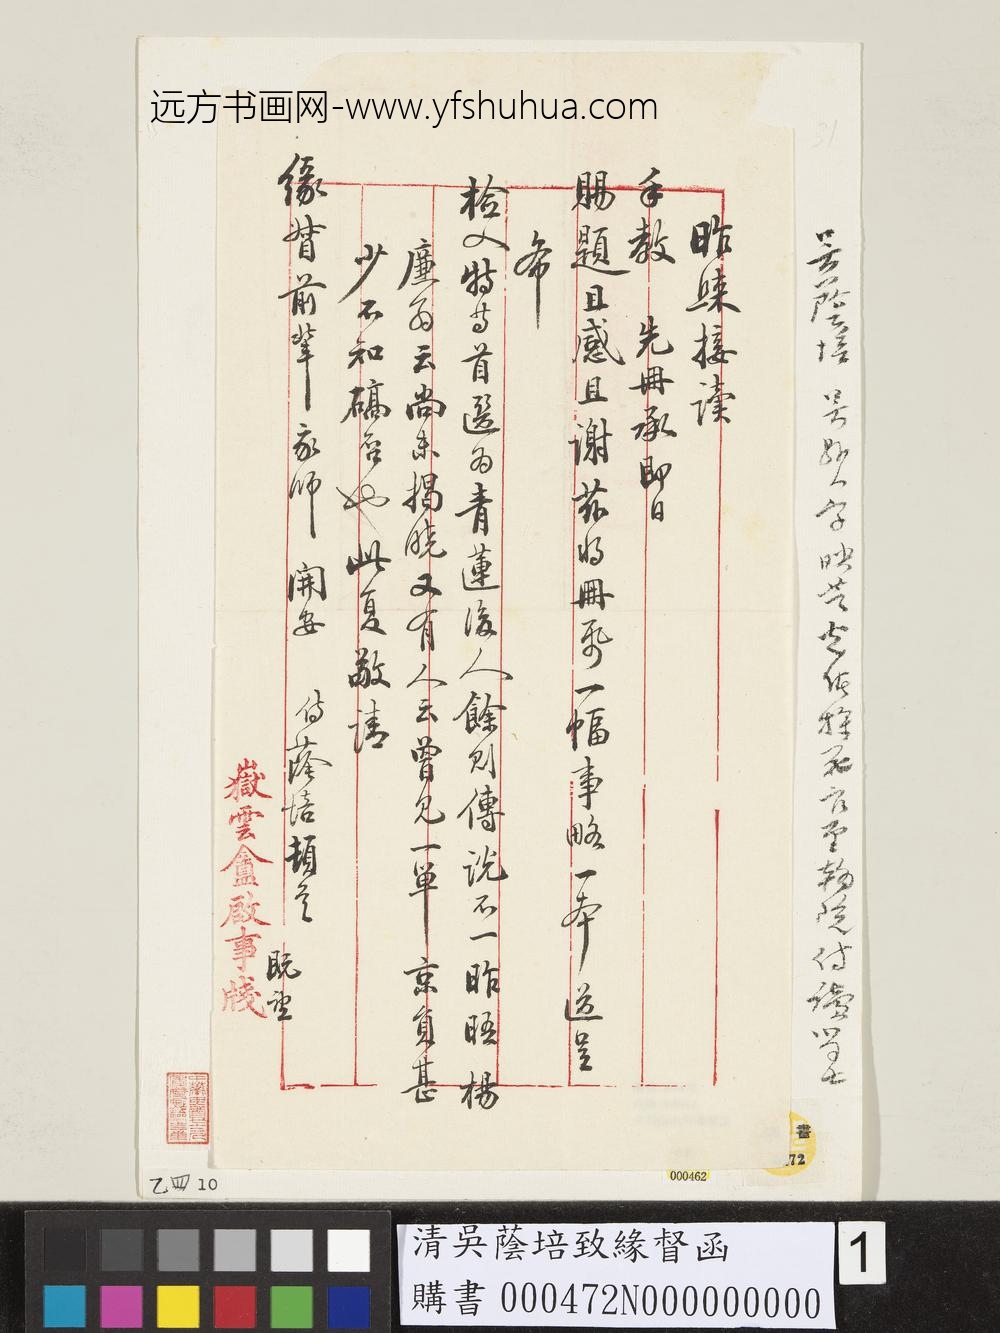 远方书画网-www.yfshuhua.com
31
昨歸接讀
手教 先冊承即日
賜題且感且謝茲將冊頁一幅事略一本送呈
希
檢入特等首選為青蓮後人餘則傳說不一昨晤楊
廉翁云尚未揭曉又有人云曾見一單京員甚
少不知確否也此复敬請
緣督前輩 開安 侍蔭培頓首
嶽雲盦啟事牋
吳蔭培 吳縣人字
乙四10
書
72
000462
清吳蔭培致緣督函
購書 000472N000000000
1